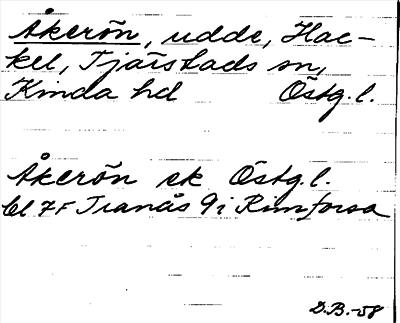 Åkerön, udde, Hac-
kel, Tjärstads sn,
Kinda hd Östg.l.
Åkerön ek Östg.l.
bl 7F Tranås 9i Rimforsa
D.B.-58